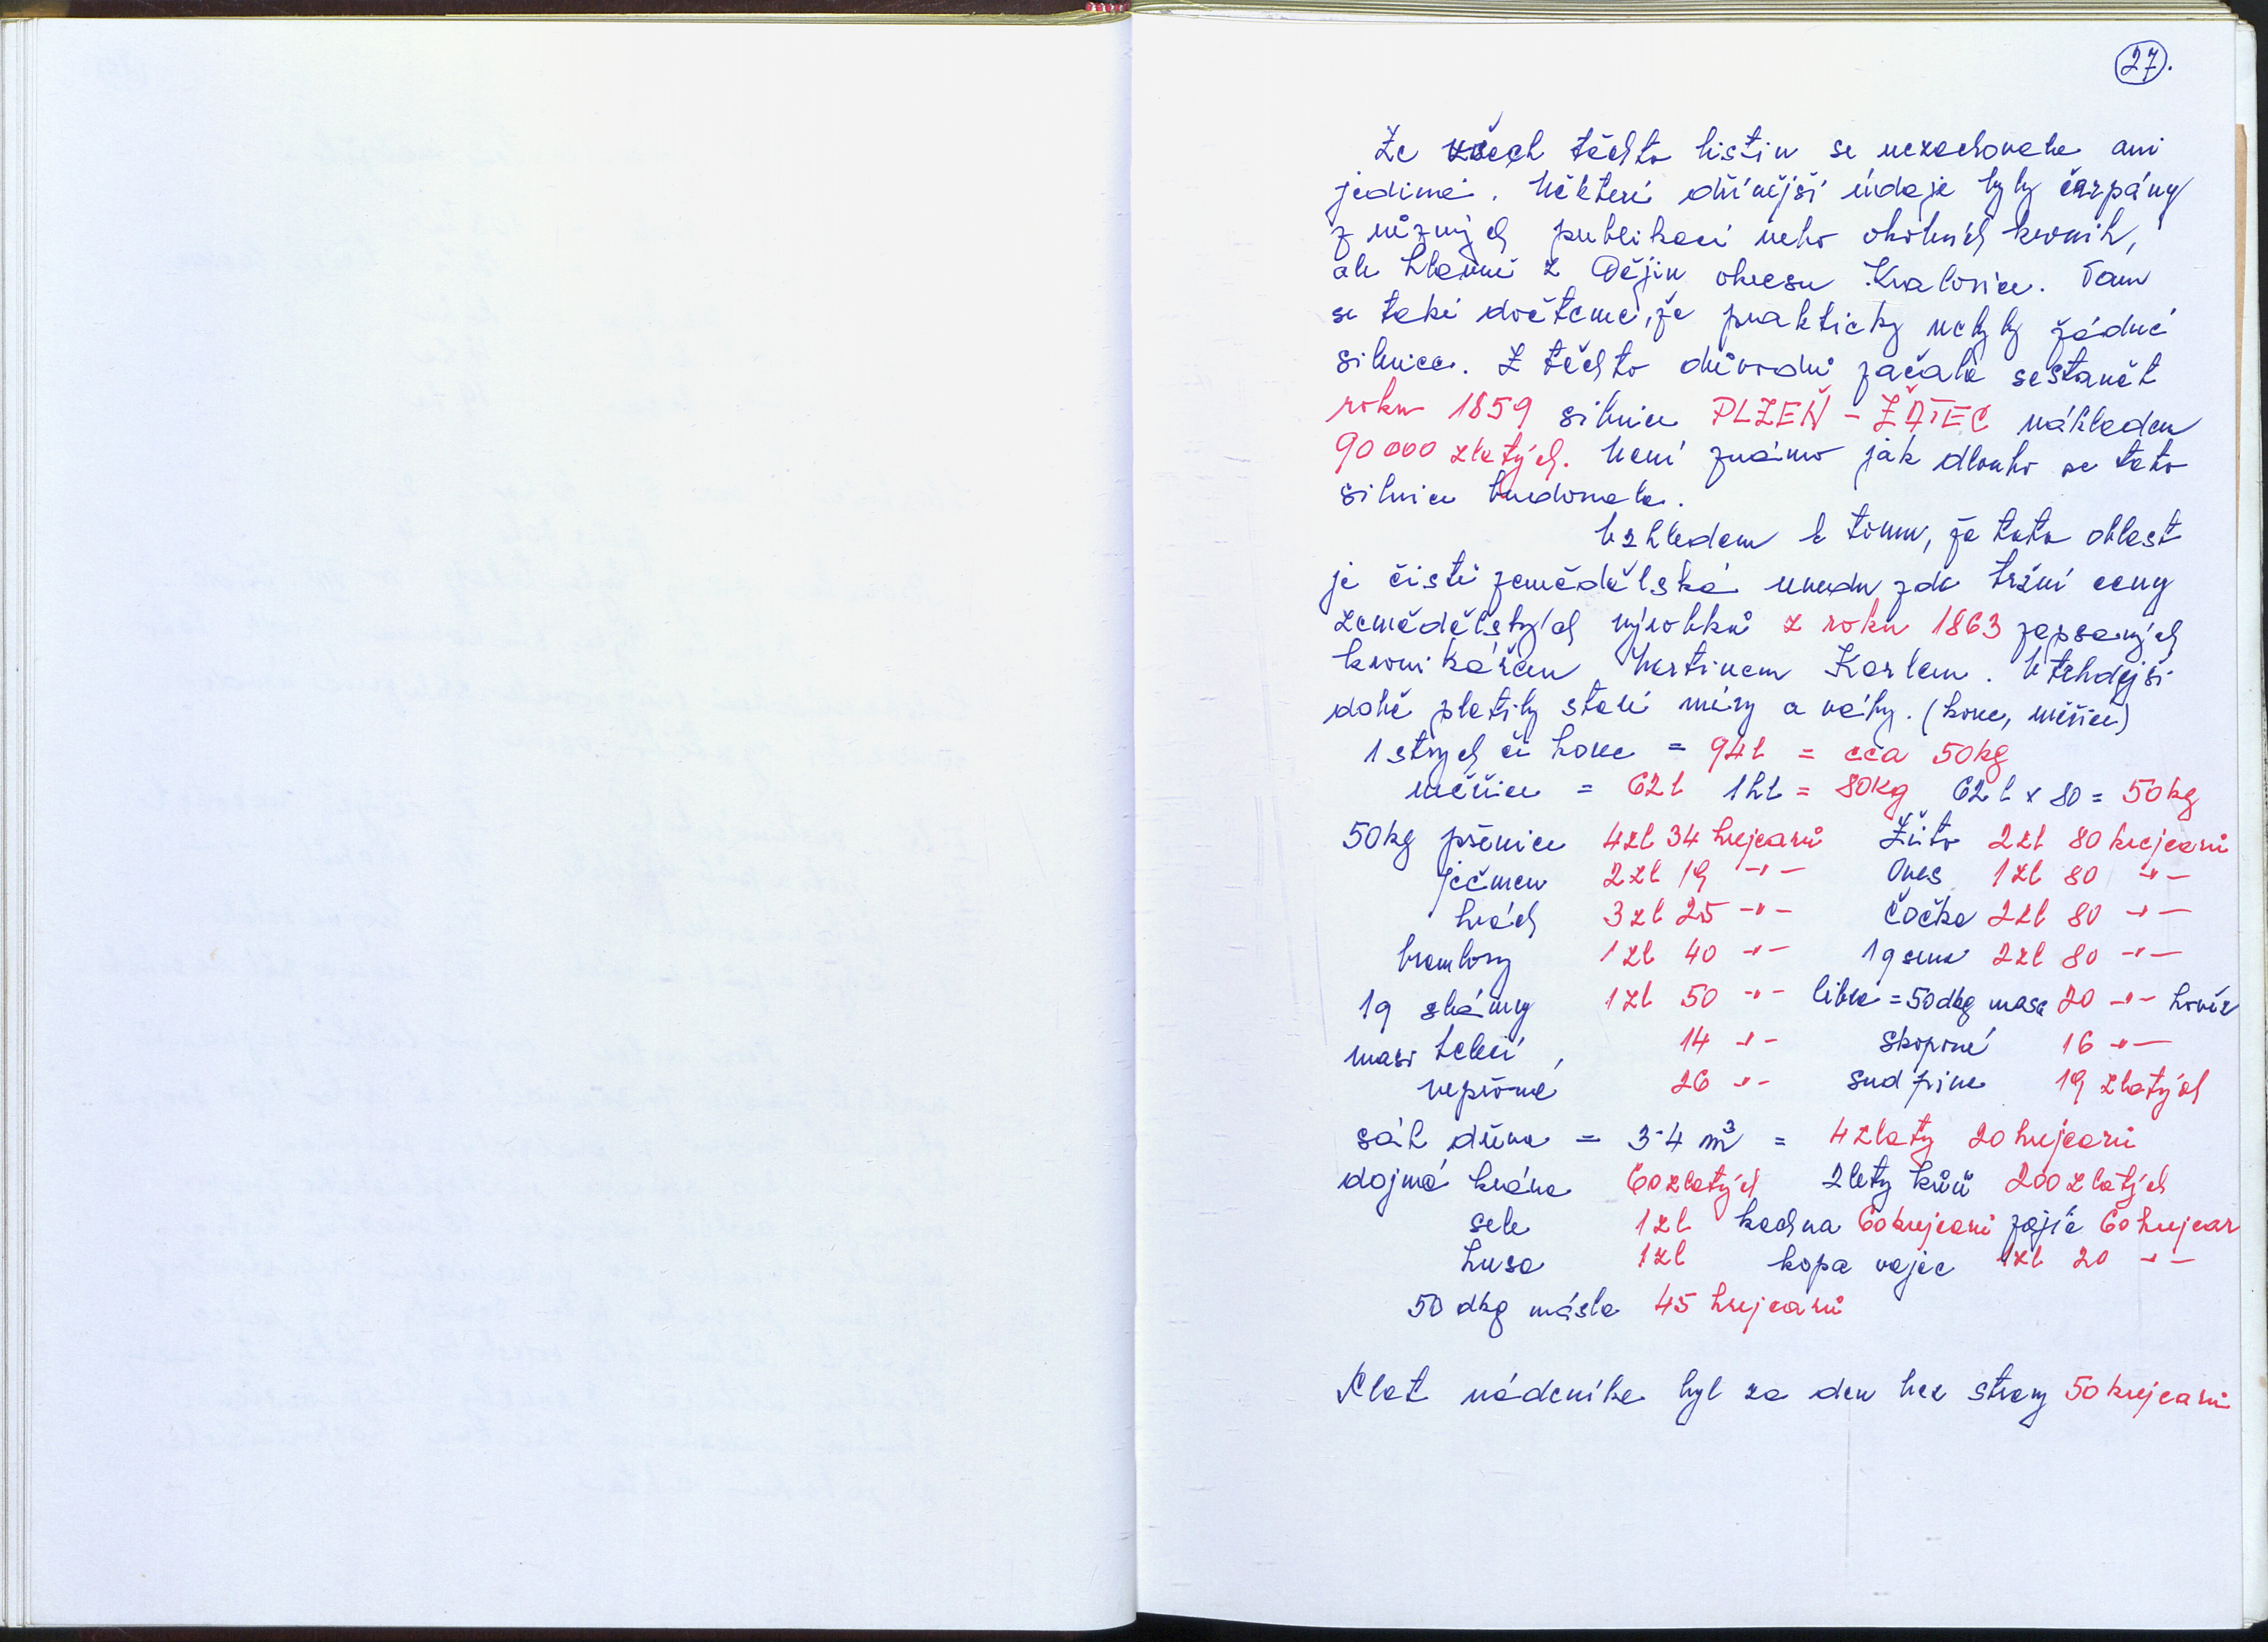 27.
Ze všech těchto listin se nezachovala ani
jediná. Některé dřínější údaje byly čerpány
z různých publikací nebo okolních kronik,
ale hlavně z Dějin okresu Kralovice. Tam
se také dočteme, že prakticky nebyly žádné
silnice. Z těchto důvodů začala se stavět
roku 1859 silnice PLZEŇ - ŽATEC nákladem
90 000 zlatých. Není známo jak dlouho se tato
silnice budovala.
Vzhledem k tomu, že tato oblast
je čistě zemědělská uvedu zde tržní ceny
zemědělských výrobků z roku 1863 zapsaných
kronikářem Martinem Karlem. V tehdejší
době platily staré míry a váhy. (korec, měřice)
1 strych či korec = 94 l = cca 50 kg
měřice = 62 l 1 hl = 80 kg 62 l x 80 = 50 kg
50 kg pšenice 4 zl 34 krejcarů Žito 2 zl 80 krejcarů
ječmen 2 zl 19 -"- Oves 1 zl 80 -"-
hrách 3 zl 25 -"- čočka 2 zl 80 -"-
brambory 1 zl 40 -"- 1 q sena 2 zl 80 -"-
1 q slámy 1 zl 50 -"- libra = 50 dkg masa 20 -"- hověz
maso telecí, 14 -"- skopové 16 -"-
vepřové 26 -"- sud piva 19 zlatých
sáh dřeva = 3·4 m³ = 4 zlaty 20 krejcarů
dojná kráva 60 zlatých 2letý kůň 200 zlatých
sele 1 zl kachna 60 krejcarů zajíc 60 krejcar
husa 1 zl kopa vajec 1 zl 20 -"-
50 dkg másla 45 krejcarů
Plat nádeníka byl za den bez stravy 50 krejcarů